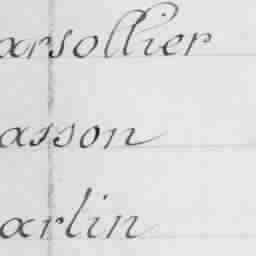 arsollier
asson
arlin